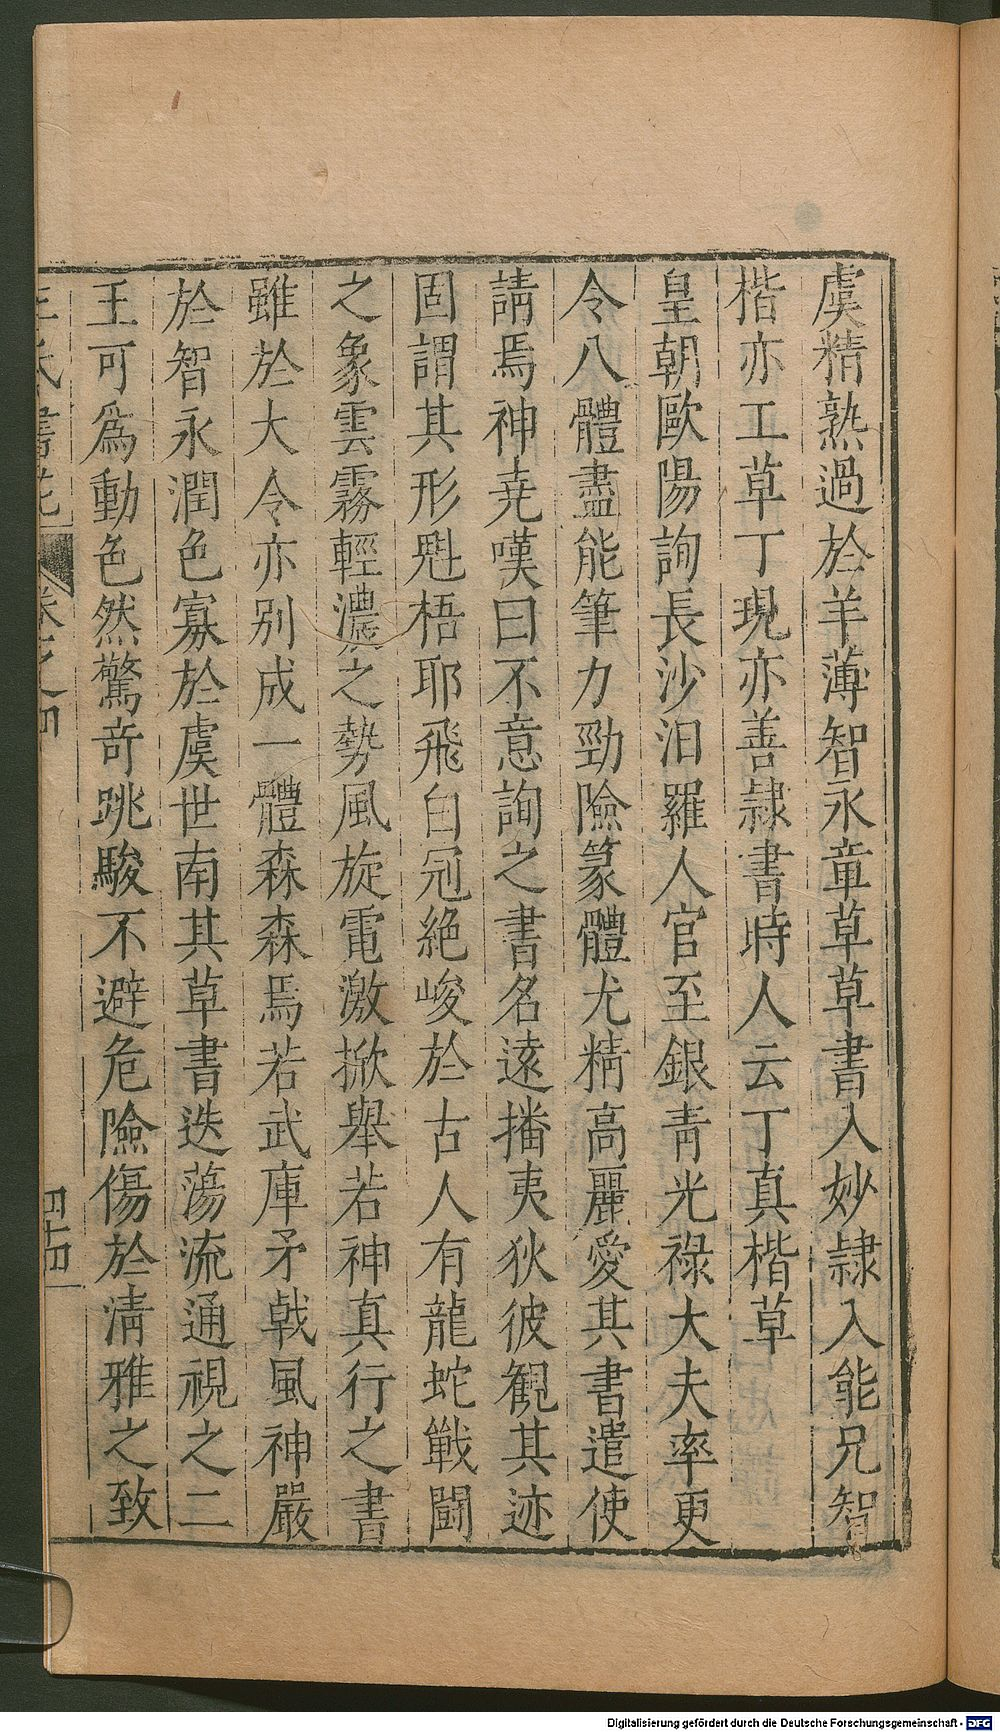 虞精熟過於羊薄智永章草草書入妙隷入能兄智
楷亦工草丁覘亦善隷書時人云丁真楷草
皇朝歐陽詢長沙汨羅人官至銀青光祿大夫率更
令八體盡能筆力勁險篆體尤精高麗愛其書遣使
請焉神堯嘆曰不意詢之書名遠播夷狄彼觀其迹
固謂其形魁梧耶飛白冠絶峻於古人有龍蛇戰鬪
之象雲霧輕濃之勢風旋電激掀舉若神真行之書
雖於大令亦別成一體森森焉若武庫矛戟風神嚴
於智永潤色寡於虞世南其草書迭蕩流通視之二
王可爲動色然驚奇跳駿不避危險傷於清雅之致
王氏書苑 卷之四 四十四
Digitalisierung gefördert durch die Deutsche Forschungsgemeinschaft - DFG